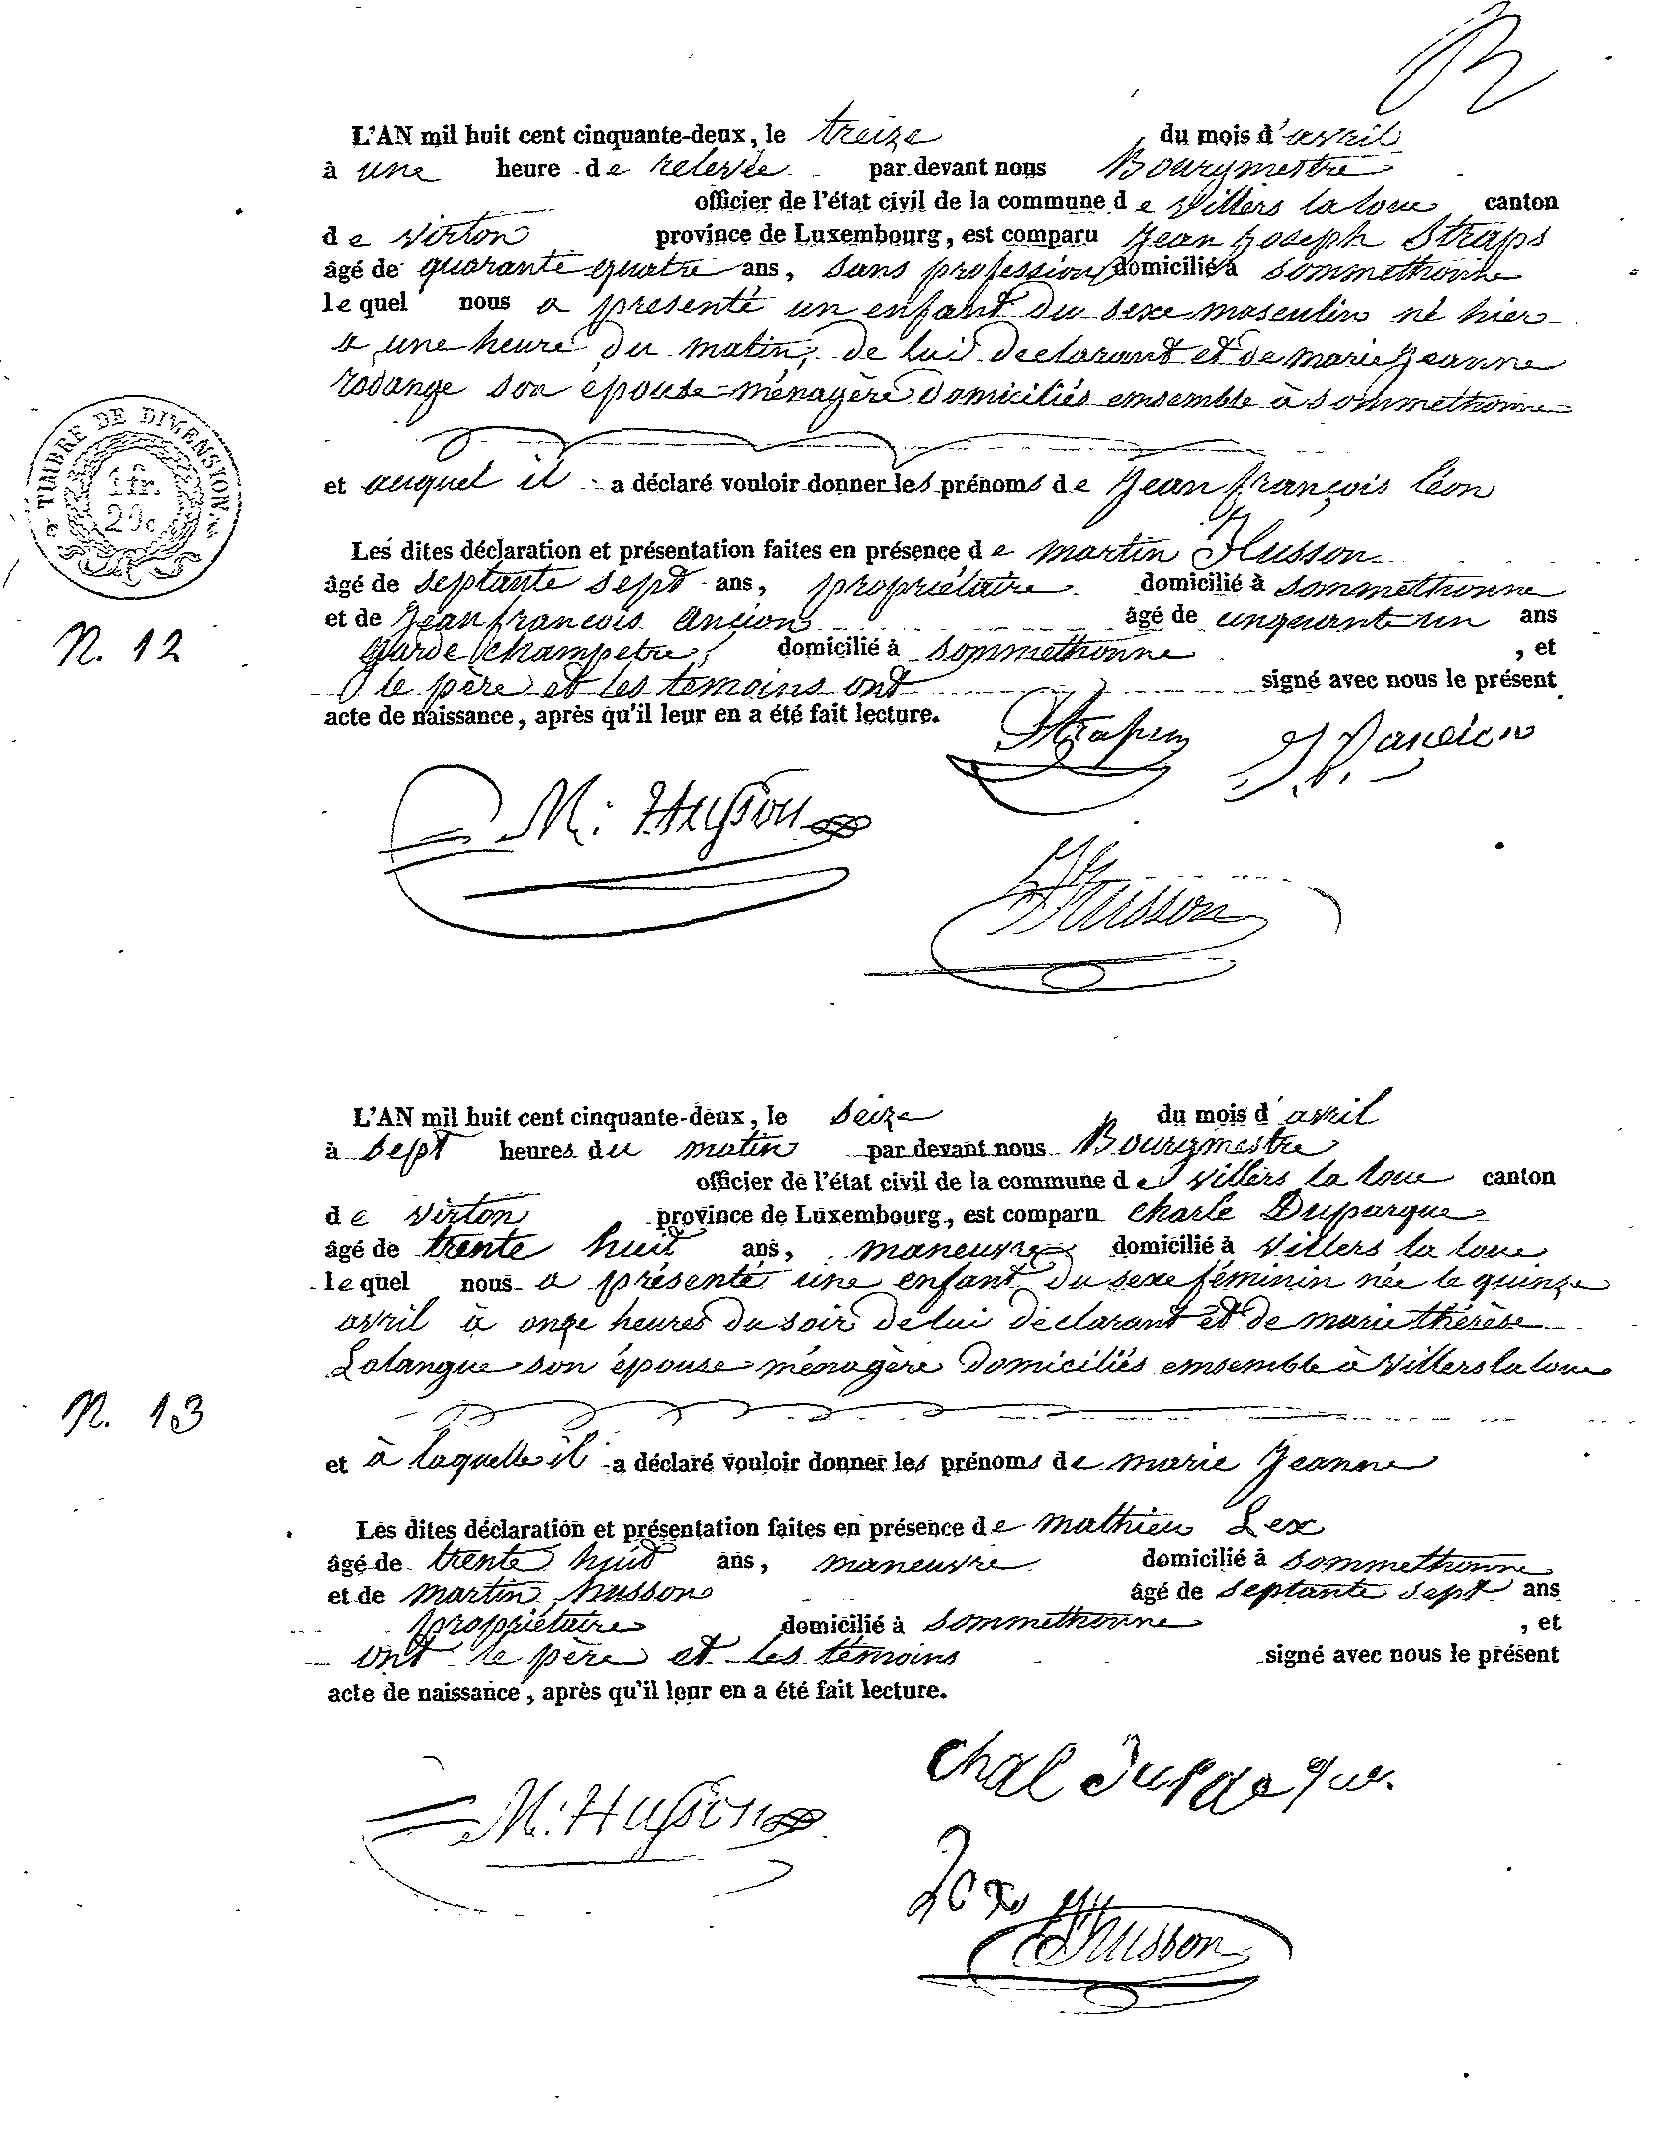 L'AN mil huit cent cinquante-deux, le treize du mois d'avril
à une heure de relevée par devant nous Bourgmestre
officier de l'état civil de la commune de villers la loue canton
de virton province de Luxembourg, est comparu Jean Joseph Straps
âgé de quarante quatre ans, sans profession domicilié à sommethonne
lequel nous a présenté un enfant du sexe masculin né hier
a une heure du matin, de lui declarant et de marie Jeanne
rodange son épouse ménagère domiciliés emsemble à sommethonne
et auquel il a déclaré vouloir donner les prénoms de Jean françois léon
TIMBRE DE DIMENSION
1 fr.
20c
Les dites déclaration et présentation faites en présence de martin Husson
âgé de septante sept ans, propriétaire domicilié à sommethonne
et de Jean francois Ancion âgé de cinquante un ans
N. 12
garde champetre, domicilié à sommethonne, et
le père et les temoins ont signé avec nous le présent
acte de naissance, après qu'il leur en a été fait lecture.
J f ancion
M: Husson
Husson
L'AN mil huit cent cinquante-deux, le seize du mois d'avril
à sept heures du matin par devant nous Bourgmestre
officier de l'état civil de la commune de villers la loue canton
de virton province de Luxembourg, est comparu charle Duparque
âgé de trente huit ans, maneuvre domicilié à villers la loue
lequel nous a présenté une enfant du sexe féminin née le quinze
avril à onze heures du soir de lui déclarant et de marie thérèse
Lalangue son épouse ménagère domiciliés emsemble à villers la loue
N. 13
et à laquelle il a déclaré vouloir donner les prénoms de marie Jeanne
Les dites déclaration et présentation faites en présence de mathieu Lex
âgé de trente huit ans, maneuvre domicilié à sommethonne
et de martin husson âgé de septante sept ans
propriétaire domicilié à sommethonne, et
ont le père et les témoins signé avec nous le présent
acte de naissance, après qu'il leur en a été fait lecture.
M: Husson
Lex
Husson